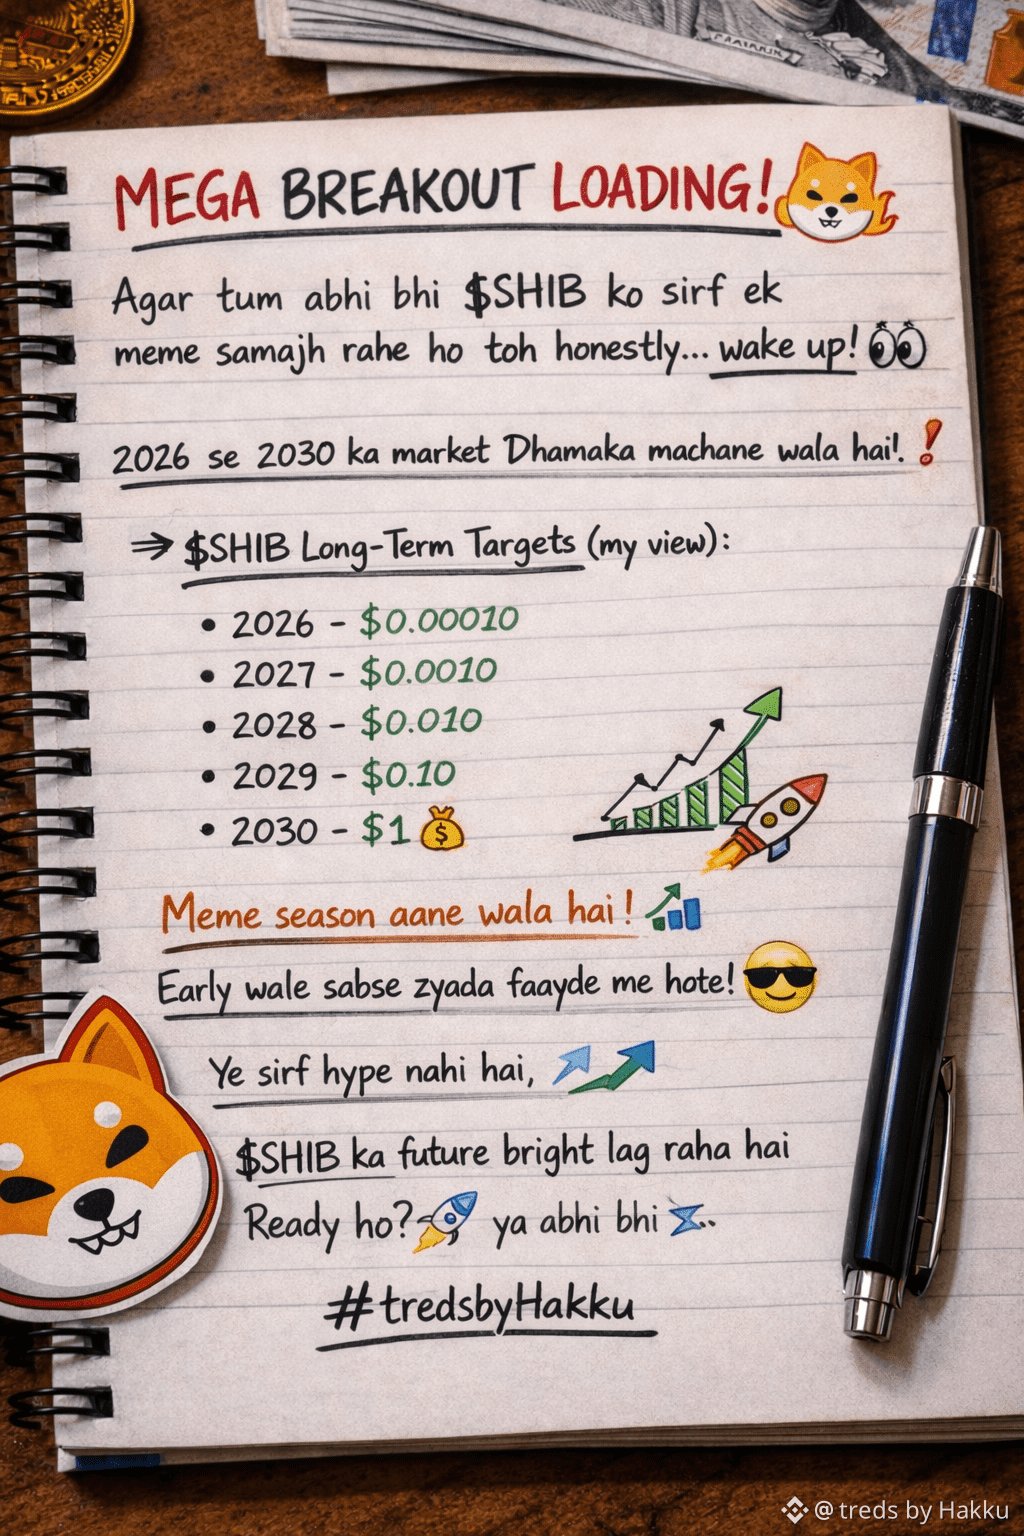 MEGA BREAKOUT LOADING!
Agar tum abhi bhi $SHIB ko sirf ek
meme samajh rahe ho toh honestly... wake up!
2026 se 2030 ka market Dhamaka machane wala hai!
⇒ $SHIB Long-Term Targets (my view):
• 2026 - $0.00010
• 2027 - $0.0010
• 2028 - $0.010
• 2029 - $0.10
• 2030 - $1
Meme season aane wala hai!
Early wale sabse zyada faayde me hote!
Ye sirf hype nahi hai,
$SHIB ka future bright lag raha hai
Ready ho? ya abhi bhi ..
#tredsbyHakku
@treds by Hakku